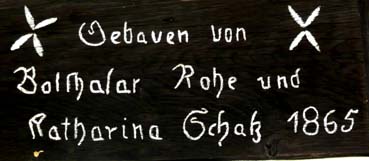 Gebauen von
Balthasar Rohe und
Katharina Schatz 1865